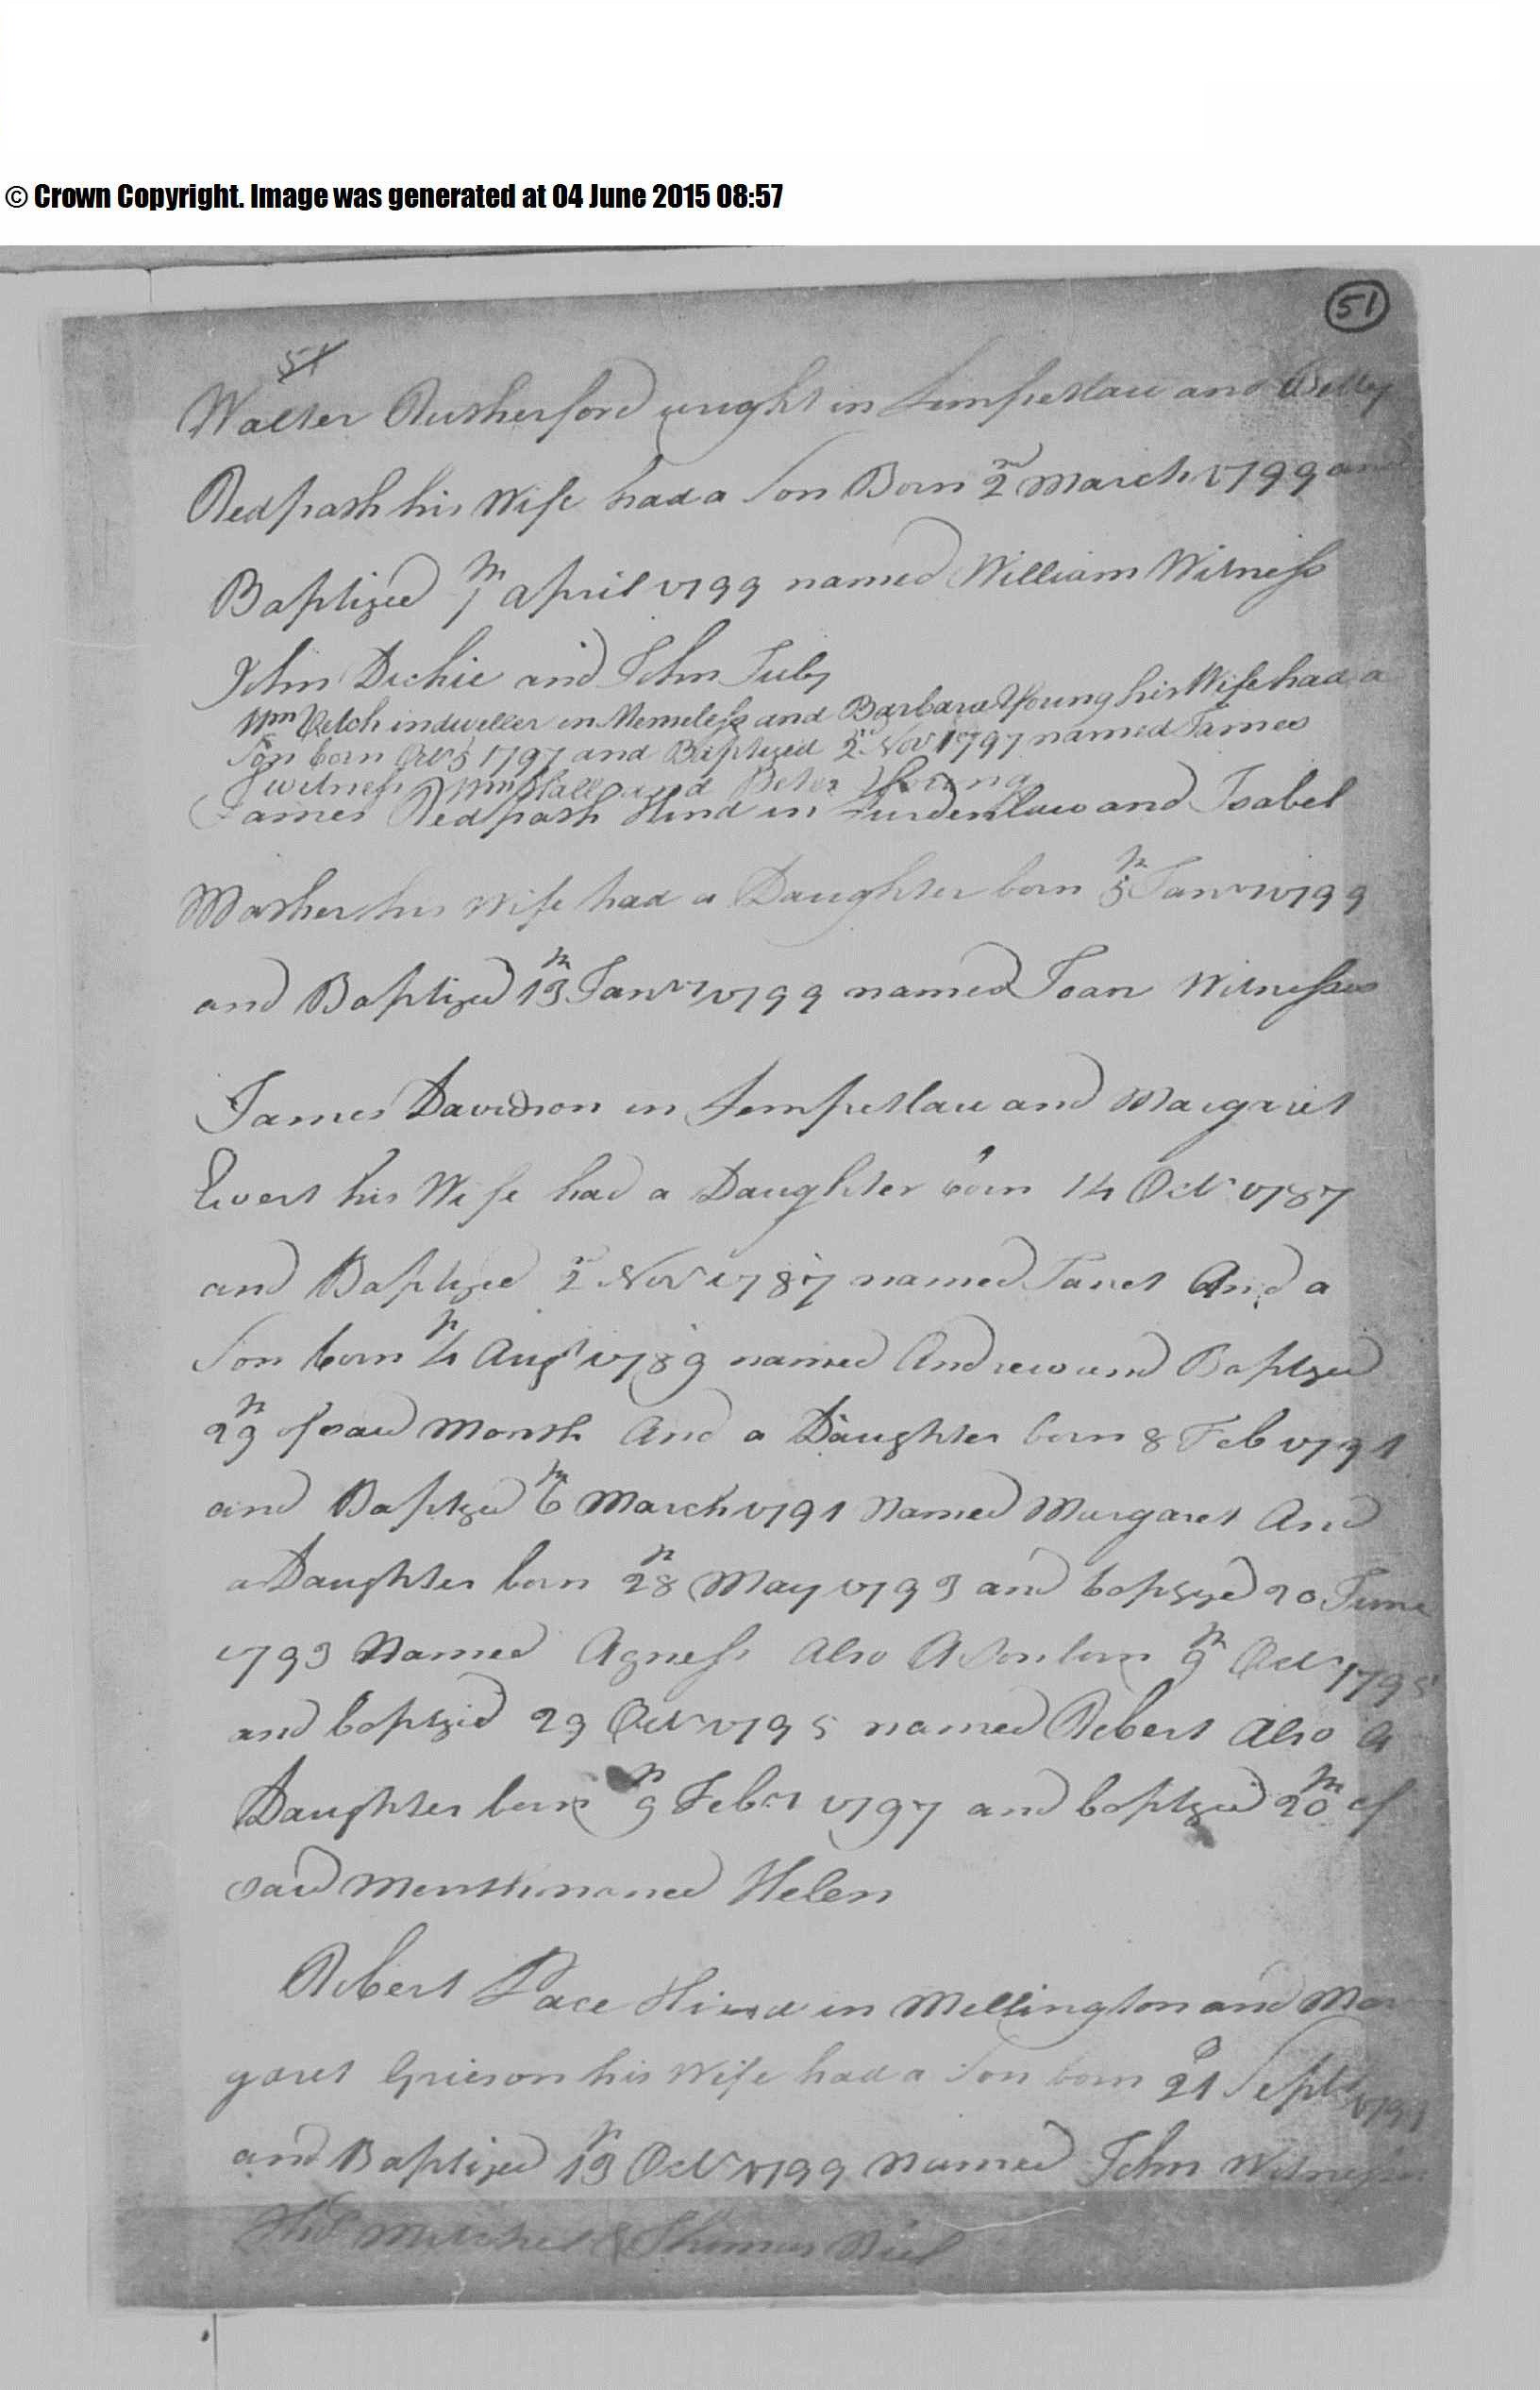 © Crown Copyright. Image was generated at 04 June 2015 08:57
51
51
Walter Rutherford wright in Tempestlaw and Betty
Redpath his Wife had a Son Born 2nd March 1799 and
Baptized 7th April 1799 named William Witness
John Dickie and John Tuly
Wm Veitch indweller in and Barbara Young his Wife had a
Son born Oct 5 1797 and Baptized 2d Nov 1797 named James
witness Wm Hall and Peter Young
James Redpath Hind in and Isabel
Mather his Wife had a Daughter born 5th Janry 1799
and Baptized 13th Janry 1799 named Joan Witnesses
James Davidson in Tempestlaw and Margaret
Ewert his Wife had a Daughter born 14 Octr 1787
and Baptized 2d Novr 1787 named Janet And a
Son born 4th Augt 1789 named Andrew and Baptzed
29th of said Month And a Daughter born 8 Feb 1791
and Baptzed 6th March 1791 Named Margaret And
a Daughter born 28th May 1793 and baptzed 20 June
1793 Named Agness Also A Son born 9th Octr 1795
and baptzed 29 Octr 1795 named Robert Also A
Daughter born 9th Febry 1797 and baptzed 20th of
said Month named Helen
Robert Pace Hind in Mellington and Mar
garet Grieson his Wife had a Son born 21 Septr
and Baptized 13th Octr 1799 Named John Witnesses
Mitchel & Thomas